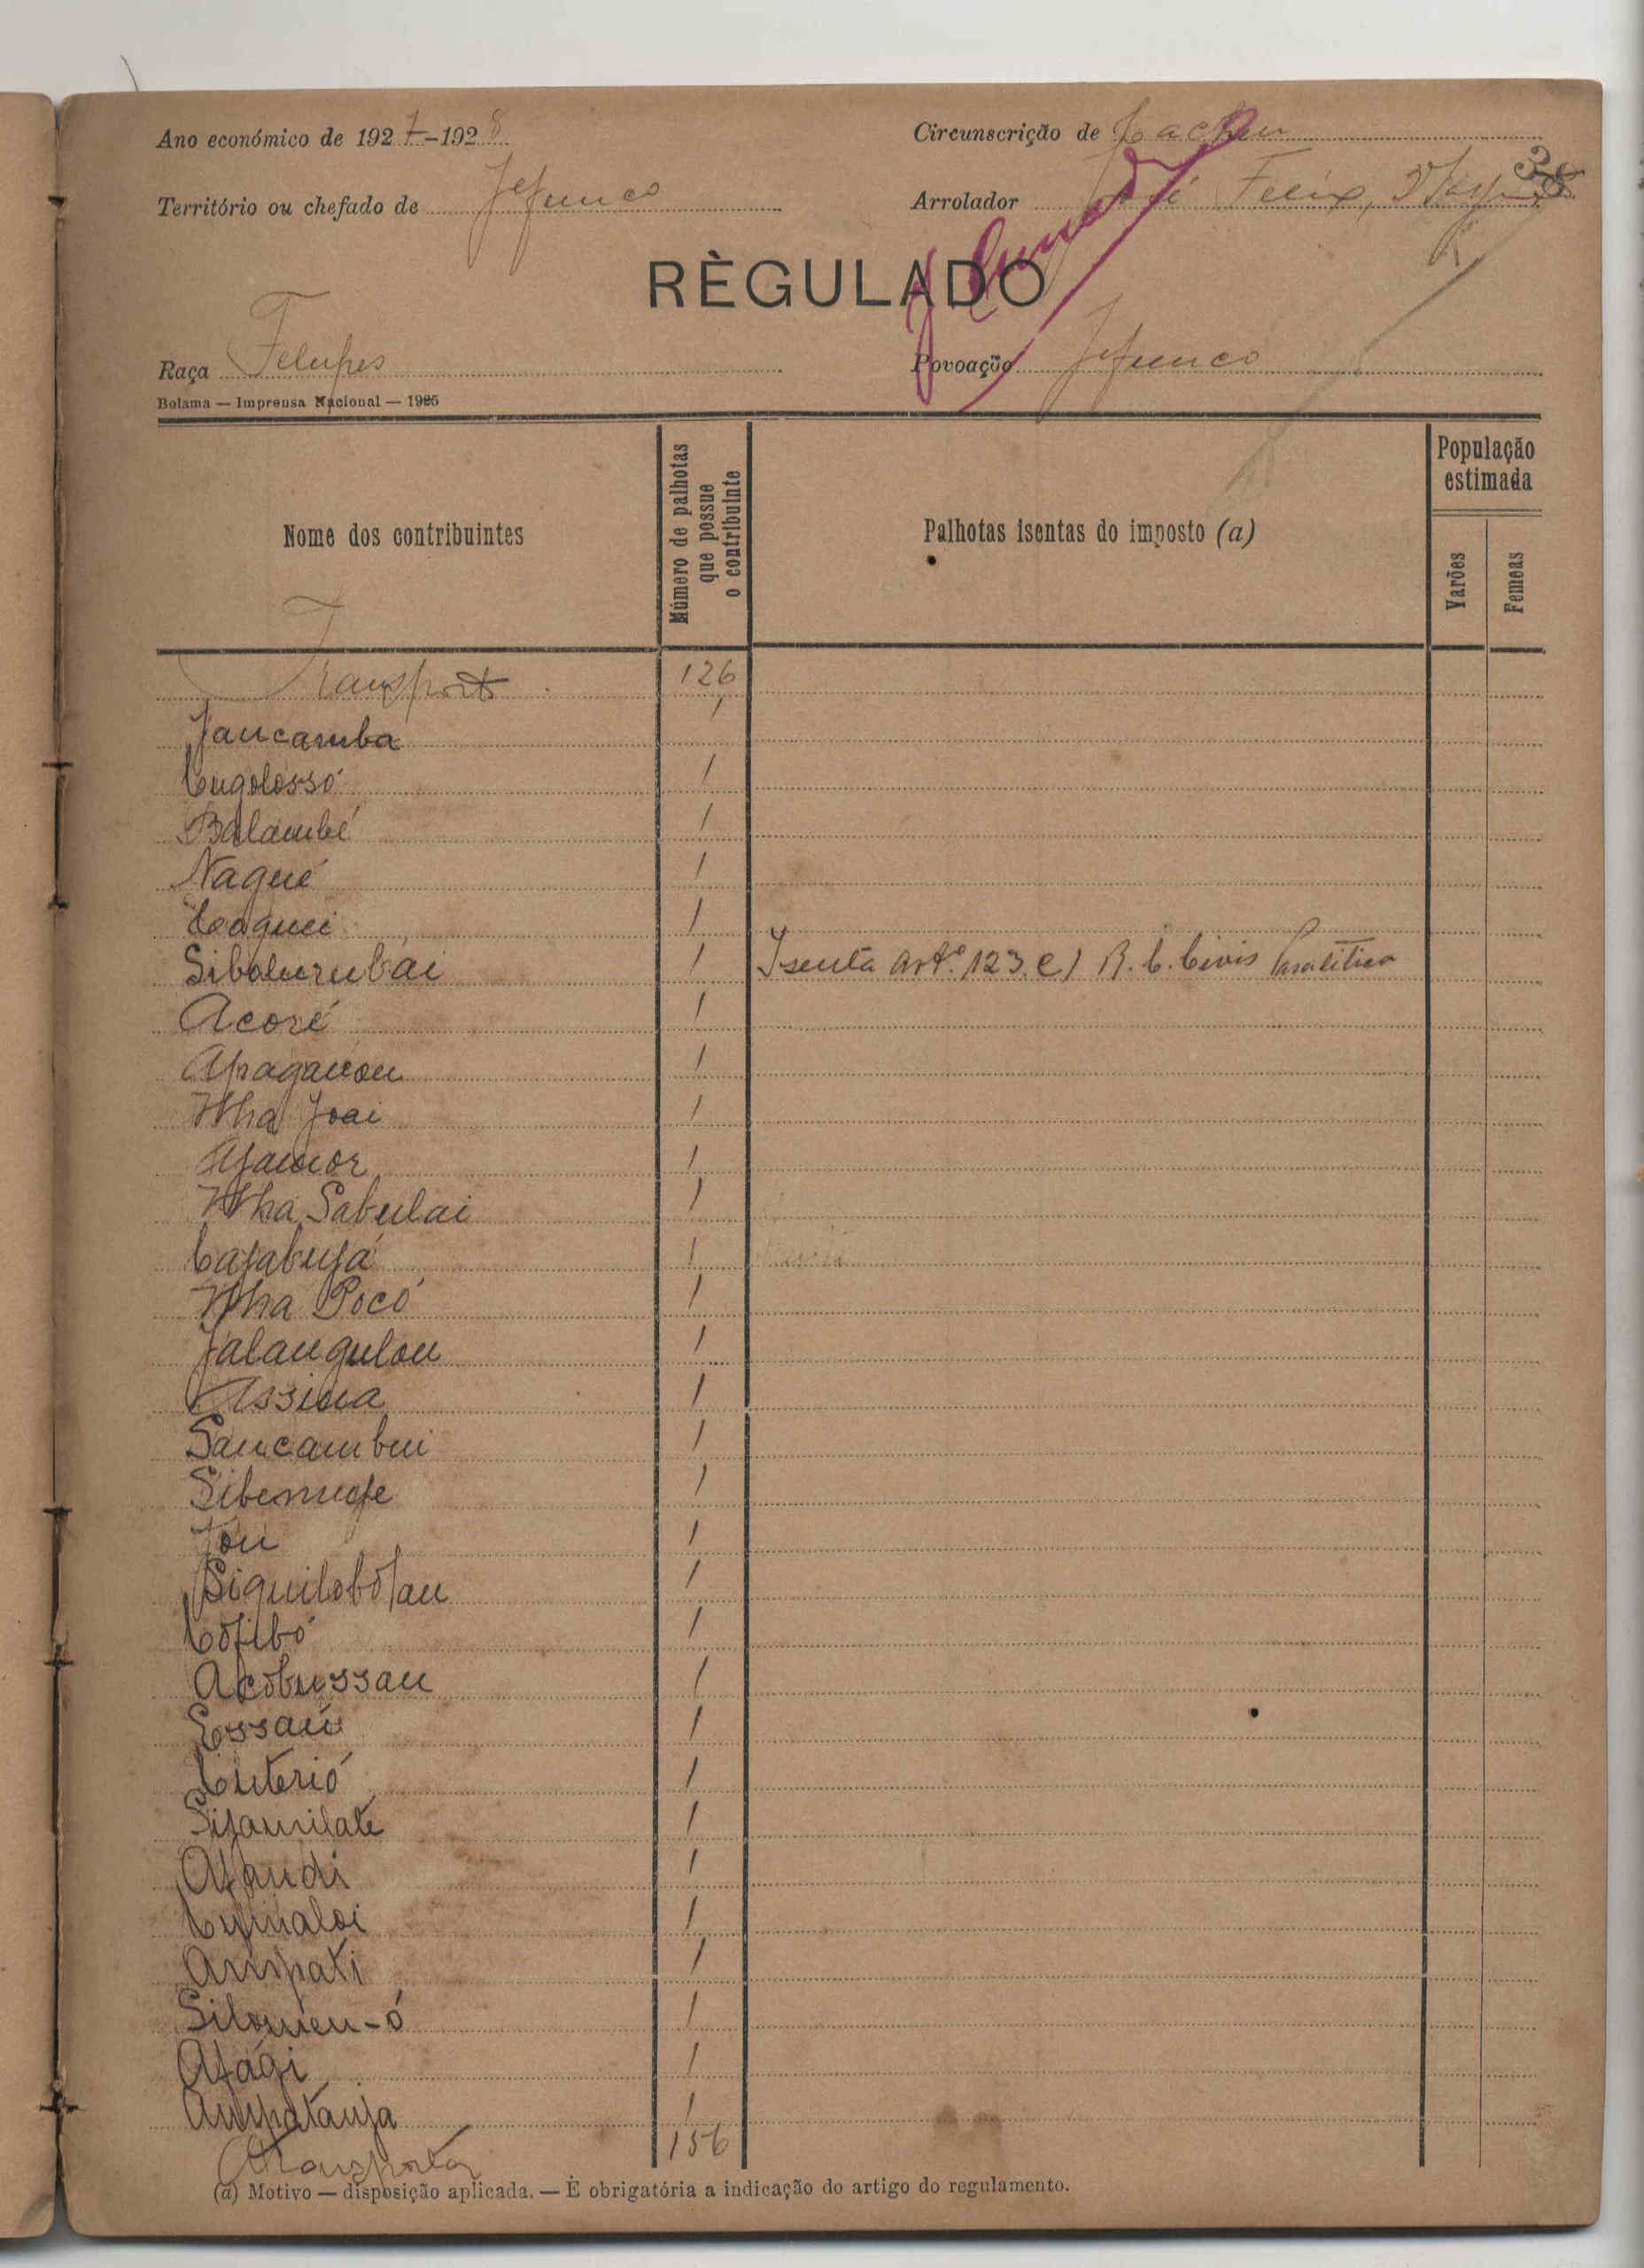 Ano económico de 1927-1928
Circunscrição de Cacheu
38
Território ou chefado de Jefunco
Arrolador José Felix
RÈGULADO
Raça Felupes
Povoação Jefunco
Bolama — Imprensa Nacional — 1925
Nome dos contribuintes
Múmero de palhotas que possue o contribuinte
Palhotas isentas do imposto (a)
População estimada
Varões
Femeas
Transporte 126
Jancamba 1
Cugolossó 1
Balambé 1
Naqué 1
Coquei 1
Siboturubai 1 Isenta Artº 123 e) R. C. Civis Paralitico
Acoré 1
Apaganou 1
Nha Joai 1
Ajamor 1
Nha Sabulai 1
Cajabujá 1
Nha Pocó 1
Jalangulou 1
Assina 1
Sancambui 1
Sibemuje 1
Jou 1
Siquilobójau 1
Cojibó 1
Acobussau 1
Essaú 1
Cuterió 1
Sijamilate 1
Ajandi 1
Cujinaloi 1
Ampati 1
Silomeu-ó 1
Ajági 1
Ampatanja 1
A Transportar 156
(a) Motivo — disposição aplicada. — É obrigatória a indicação do artigo do regulamento.